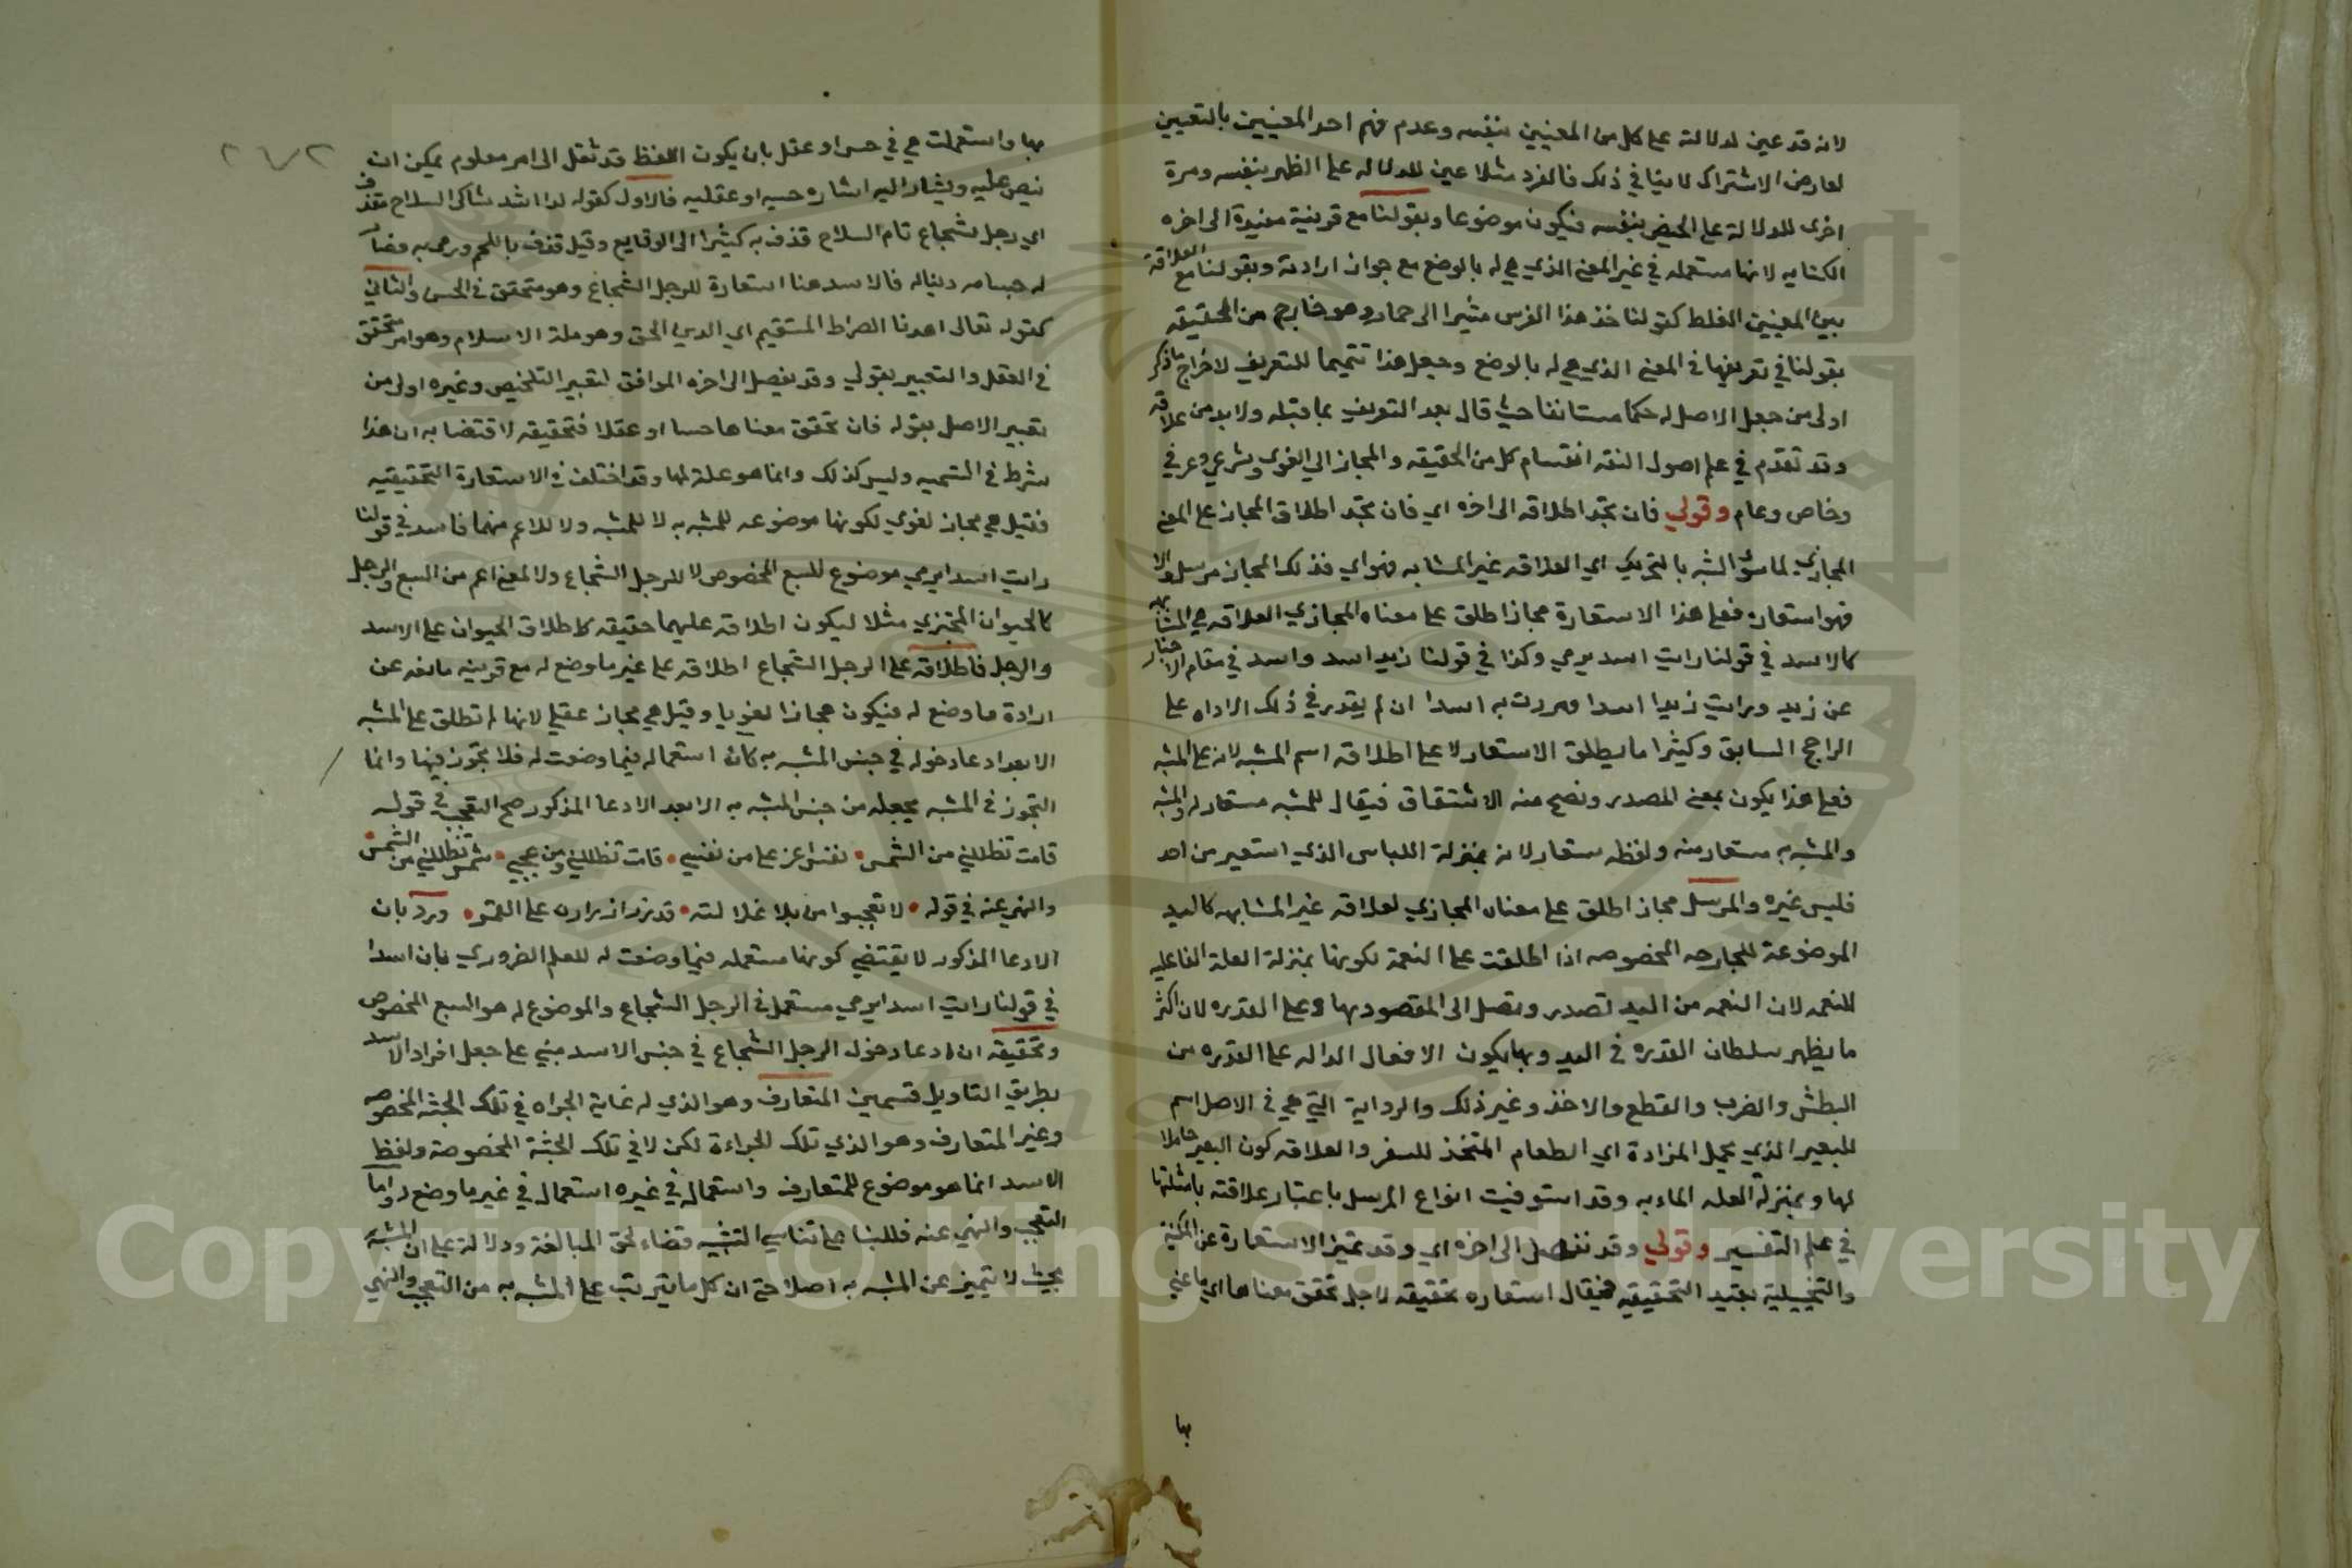 لانه قد عين لدلالته على كل من المعنيين بنفسه وعدم فهم احد المعنيين بالتعيين
لعارض الاشتراك لا ينافي ذلك فالقرء مثلا عين للدلاله على الطهر بنفسه ومرة
اخرى للدلالة على الحيض بنفسه فيكون موضوعا وبقولنا مع قرينة مفيدة الى اخره
الكنايه لانها مستعمله في غير المعنى الذي هي له بالوضع مع جواز ارادته وبقولنا مع العلاقة
بين المعنيين الغلط كقولنا خذ هذا الفرس مشيرا الى حمار وهو خارج من الحقيقه
بقولنا في تعريفها في المعنى الذي هي له بالوضع وجعل هذا تتميما للتعريف لاخراج ما ذكر
اولى من جعل الاصل له حكما مستانفا حيث قال بعد التعريف بما قبله ولابد من علاقه
وقد تقدم في علم اصول الفقه انقسام كل من الحقيقه والمجاز الى لغوي وشرعي وعرفي
وخاص وعام وقولي فان تجد اطلاقه الى اخره اي فان تجد اطلاق المجاز على المعنى
المجازي لما سوى الشبه بالتحريك اي العلاقه غير المشابه فهو اي فذلك المجاز مرسل والا
فهو استعاره فعلى هذا الاستعارة مجاز اطلق على معناه المجازي العلاقه هي المشابهه
كالاسد في قولنا رايت اسد يرمي وكذا في قولنا زيد اسد واسد في مقام الاخبار
عن زيد ورايت زيدا اسدا ومررت به اسدا ان لم يقدر في ذلك الاداه على
الراجح السابق وكثيرا ما يطلق الاستعار لا على اطلاقه اسم المشبه لانه على المشبه
فعلى هذا يكون بمعنى المصدر ونصح منه الاشتقاق فيقال للمشبه مستعار له والمشبه
والمشبه به مستعار منه ولفظه مستعار لانه بمنزلة اللباس الذي استعير من احد
فلبس غيره والمرسل مجاز اطلق على معناه المجازي لعلاقه غير المشابهه كاليد
الموضوعة للجارحه المخصوصه اذا اطلقت على النعمة لكونها بمنزلة العلة الفاعليه
للنعمه لان النعمه من اليد تصدر وتصل الى المقصود بها وعلى القدره لان اكثر
ما يظهر سلطان القدره في اليد وبها يكون الافعال الداله على القدره من
البطش والضرب والقطع والاخذ وغير ذلك والرواية التي هي في الاصل اسم
للبعير الذي يحمل المزادة اي الطعام المتخذ للسفر والعلاقه كون البعير حاملا
لها وبمنزلة العله الماديه وقد استوفيت انواع المرسل باعتبار علاقته بامثلتها
في علم التفسير وقولي وقد نفصل الى اخره اي وقد تميز الاستعارة عن المكنية
والتخييلية بقيد التحقيقيه فيقال استعاره تحقيقيه لاجل تحقق معناها اي ما عني
بها
بها واستعملت هي في حس او عقل بان يكون اللفظ قد نقل الى امر معلوم يمكن ان
ينص عليه ويشار اليه اشاره حسيه او عقليه فالاول كقوله لدا اسد شاكي السلاح مقذف
اي رجل شجاع تام السلاح قذف به كثيرا الى الوقايع وقيل قذف باللحم ورمى به فصار
له جسامه ونباله فالاسد هنا استعارة للرجل الشجاع وهو متحقق في الحس والثاني
كقوله تعالى اهدنا الصراط المستقيم اي الدين الحق وهو ملة الاسلام وهو امر متحقق
في العقل والتعبير بقولي وقد نفصل الى اخره الموافق لتعبير التلخيص وغيره اولى من
تعبير الاصل بقوله فان تحقق معناها حسا او عقلا فتحقيقه لاقتضابه ان هذا
شرط في التسميه وليس كذلك وانما هو علة لها وقد اختلف في الاستعارة التحقيقيه
فقيل هي مجاز لغوي لكونها موضوعه للمشبه به لا للمشبه ولا للاعم منهما فاسد في قولنا
رايت اسد ايرمي موضوع للسبع المخصوص لا للرجل الشجاع ولا لمعنى اعم من السبع والرجل
كالحيوان المجتري مثلا ليكون اطلاقه عليهما حقيقه كاطلاق الحيوان على الاسد
والرجل فاطلاقه على الرجل الشجاع اطلاقه على غير ما وضع له مع قرينه مانعه عن
ارادة ما وضع له فيكون مجازا لغويا وقيل هي مجاز عقلي لانها لم تطلق على المشبه
الا بعد ادعا دخوله في جنس المشبه به كان استعماله فيما وضعت له فلا تجوز فيها وانما
التجوز في المشبه يجعله من جنس المشبه به الا بعد الادعا المذكور صح التعجب في قوله
قامت تظللني من الشمس • نفس اعز علي من نفسي • قامت تظللني ومن عجب • شمس تظللني من الشمس •
والنهي عنه في قوله • لا تعجبوا من بلا غلالته • قد زر ازراره على القمر • ورد بان
الادعا المذكور لا يقتضي كونها مستعمله فيما وضعت له للعلم الضروري فان اسدا
في قولنا رايت اسد ايرمي مستعمل في الرجل الشجاع والموضوع له هو السبع المخصوص
وتحقيقه ان ادعا دخول الرجل الشجاع في جنس الاسد مبني على جعل افراد الاسد
بطريق التاويل قسمين المتعارف وهو الذي له غاية الجراه في تلك الجثه المخصوصه
وغير المتعارف وهو الذي تلك الجراءة لكن لا في تلك الجثة المخصوصة ولفظ
الاسد انما هو موضوع للمتعارف واستعماله في غيره استعمال في غير ما وضع له واما
التعجب والنهي عنه فللبنا على تناسي التشبيه قضاء لحق المبالغة ودلالة على ان المشبه
بحيث لا يتميز عن المشبه به اصلا حتى ان كل ما يترتب على المشبه به من التعجب والنهي
Copyright © King Saud University